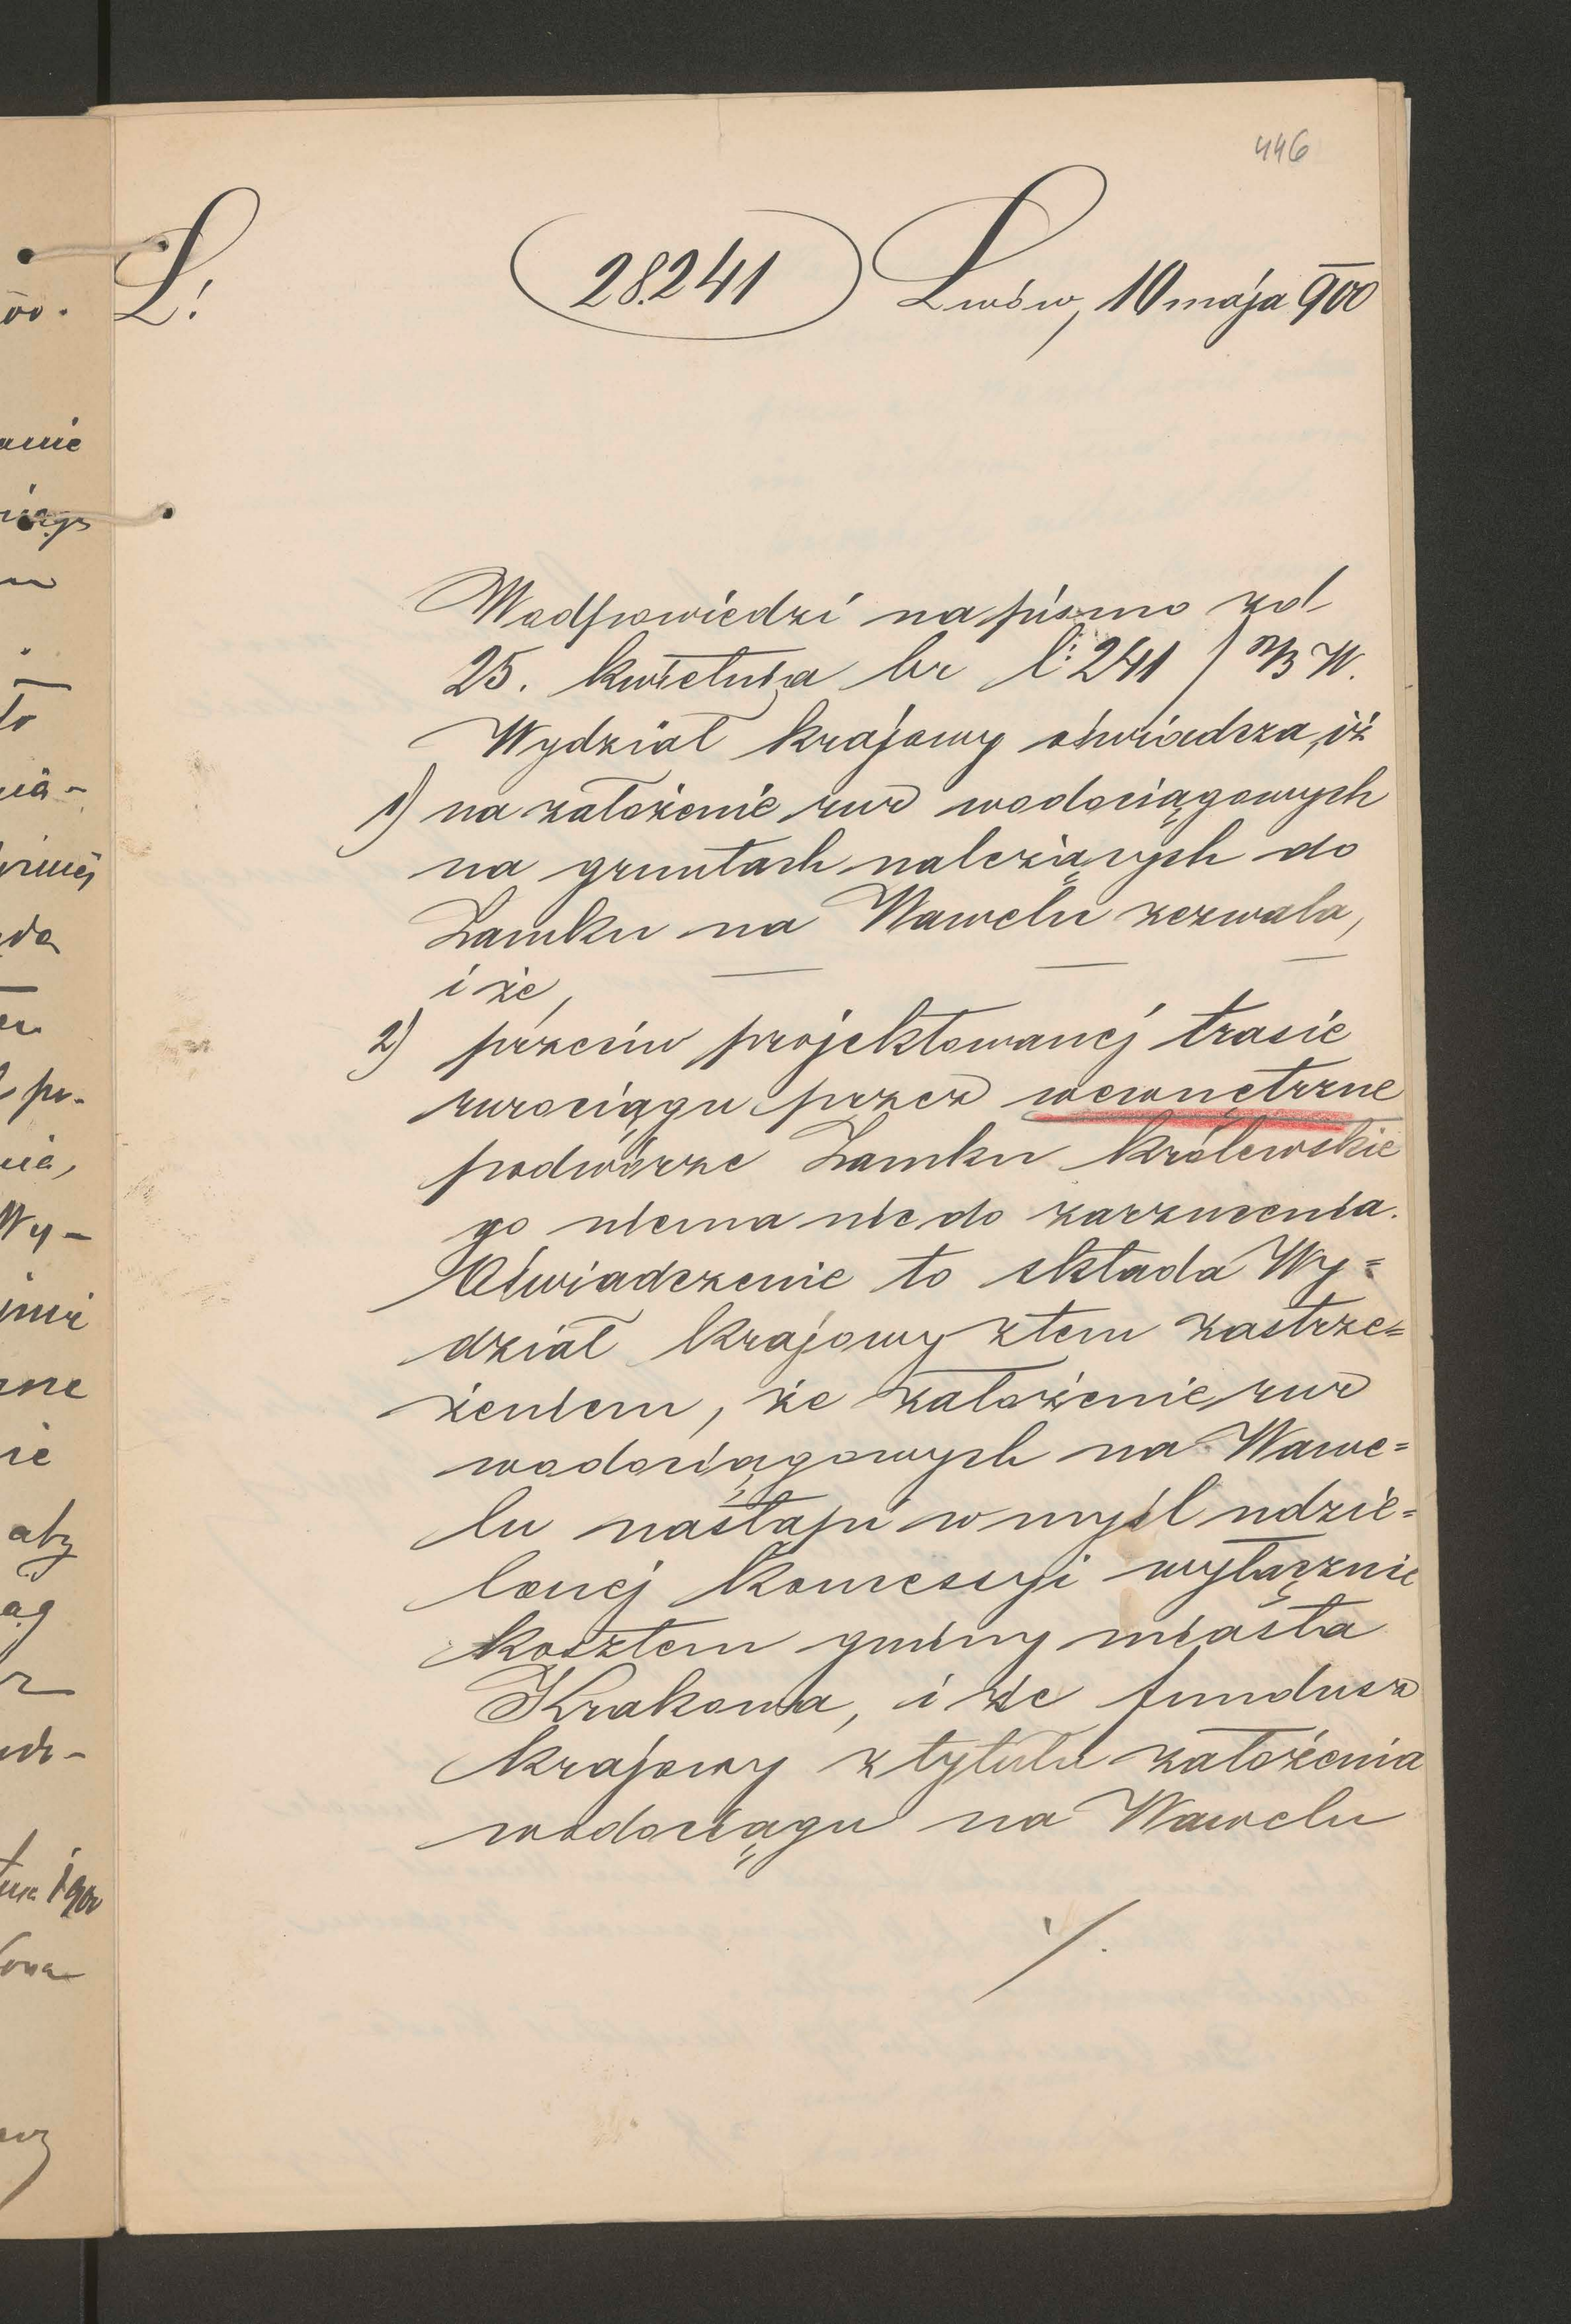 446
L: 28.241 Lwów, 10 maja 900
W odpowiedzi na pismo z d
25. kwietnia br l: 241 / B W.
Wydział krajowy oświadcza, iż
1) na założenie rur wodociągowych
na gruntach należących do
Zamku na Wawelu zezwala,
i że,
2) przeciw projektowanej trasie
rurociągu przez wewnętrzne
podwórze Zamku królewskie
go niema nic do zarzucenia.
Oświadczenie to składa Wy=
dział krajowy z tem zastrze=
żeniem, że założenie rur
wodociągowych na Wawe=
lu nastąpi w myśl udzie=
lonej koncesyi wyłącznie
kosztem gminy miasta
Krakowa, i że fundusz
krajowy z tytułu założenia
wodociągu na Wawelu
·/.